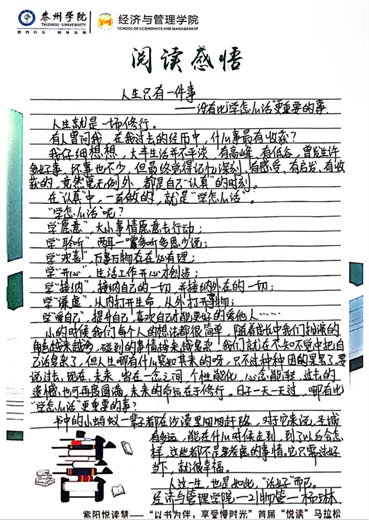 泰州学院
TAIZHOU UNIVERSITY
经济与管理学院
SCHOOL OF ECONOMICS AND MANAGEMENT
阅读感悟
人生只有一件事
——没有比学怎么活更重要的事
人生就是一场修行。
有人曾问我，在我过去的经历中，什么事最有收获？
我仔细想想，大半生活并不平淡，有高峰，有低谷，曾经
好事，坏事也不少，但最终觉得记忆深刻，有感受，有启发，有收
获的，竟然毫无例外，都是自己“认真”的时刻。
在“认真”中，一直做的，就是“学怎么活”。
“学怎么活”呢？
学“愿意”，大小事情愿意去行动；
学“聆听”，两耳一嘴多听多思少说；
学“欢喜”，万事万物存在必有理；
学“开心”，生活工作开心才创造；
学“接纳”，接纳自己的一切，并接纳外在的一切；
学“谦虚”，从内打开生命，从外打开事物；
学“爱自己”，提升自己，喜欢自己才能更好的爱他人……
小的时候我们每个人的想法都很简单，随着成长中我们扮演的
角色越来越多，碰到的事情越来越复杂，我们就在不知不觉中把自
己活复杂了，但人生哪有什么突如其来的呀，只不过种种因的果罢了，要
记过去，现在，未来，皆在一念之间，个性能化，心念能转，过去的
遗憾，也可再度圆满，未来的命运在于修行。日子一天一天过，哪有比
“学怎么活”更重要的事？
书中的小蚂蚁一辈子都在沙漠里
有多远，能在什么时候走到，到了以后会怎
样，这些都不是要考虑的事情，它只需过好
当下，就很幸福。
人这一生，也是如此，“活好”而已。
经济与管理学院—21物管一杨琳
紫阳悦读慧——“以书为伴，享受慢时光”首届“悦读”马拉松